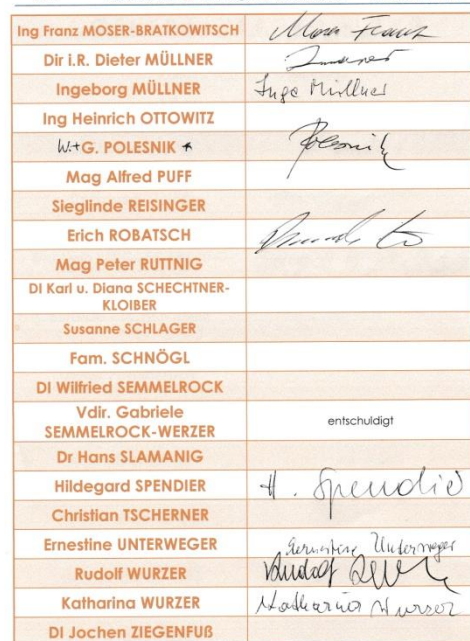 Ing Franz MOSER-BRATKOWITSCH Moser Franz
Dir i.R. Dieter MÜLLNER
Ingeborg MÜLLNER Inge Müllner
Ing Heinrich OTTOWITZ
W.+G. POLESNIK Polesnik
Mag Alfred PUFF
Sieglinde REISINGER
Erich ROBATSCH
Mag Peter RUTTNIG
DI Karl u. Diana SCHECHTNER-
KLOIBER
Susanne SCHLAGER
Fam. SCHNÖGL
DI Wilfried SEMMELROCK
Vdir. Gabriele
SEMMELROCK-WERZER entschuldigt
Dr Hans SLAMANIG
Hildegard SPENDIER H. Spendier
Christian TSCHERNER
Ernestine UNTERWEGER Ernestine Unterweger
Rudolf WURZER Rudolf
Katharina WURZER Katharina Wurzer
DI Jochen ZIEGENFUß